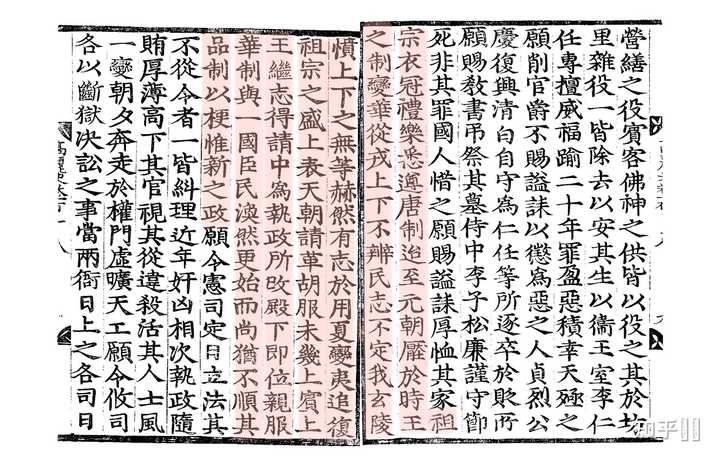 營繕之役賓客佛神之供皆以役之其於坊
里雜役一皆除去以安其生以衛王室李仁
任專擅威福踰二十年罪盈惡積幸天殛之
願削官爵不賜謚誄以懲爲惡之人貞烈公
慶復興清白自守爲仁任等所逐卒於貶所
願賜敎書弔祭其墓侍中李子松廉謹守節
死非其罪國人惜之願賜謚誄厚恤其家祖
宗衣冠禮樂悉遵唐制迨至元朝壓於時王
之制變華從戎上下不辨民志不定我玄陵
憤上下之無等赫然有志於用夏變夷追復
祖宗之盛上表天朝請革胡服未幾上賓上
王繼志得請中爲執政所攺殿下即位親服
華制與一國臣民渙然更始而尚猶不順其
品制以梗惟新之政願令憲司定日立法其
不從令者一皆糾理近年奸凶相次執政隨
賄厚薄高下其官視其從違殺活其人士風
一變朝夕奔走於權門虛曠天工願令攸司
各以斷獄決訟之事當兩衙日上之各司日